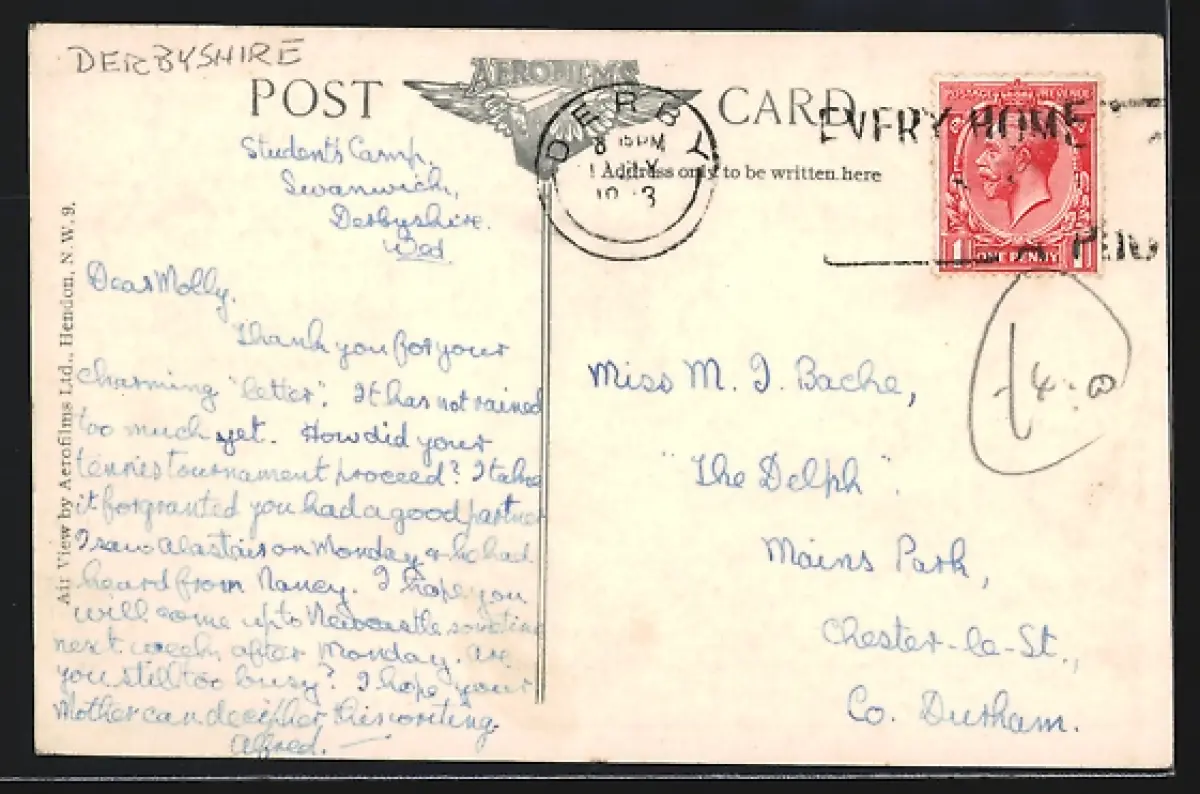 DERBYSHIRE
POST CARD
AEROFILMS
Address only to be written here
Air View by Aerofilms Ltd., Hendon, N.W. 9.
DERBY
8 15 PM
JLY
EVERY HOME
POSTAGE REVENUE
1 ONE PENNY 1
£4.00
Students Camp,
Swanwick,
Derbyshire.
Wed.
Dear Molly,
Thank you for your
charming "letter". It has not rained
too much yet. How did your
tennis tournament proceed? I take
it for granted you had a good partner
I saw Alastair on Monday & he had
heard from Nancy. I hope you
will come up to Newcastle sometime
next week, after Monday. Are
you still too busy? I hope your
Mother can decipher this writing.
Alfred.
Miss M. I. Bache,
"The Delph".
Mains Park,
Chester-le-St.,
Co. Durham.